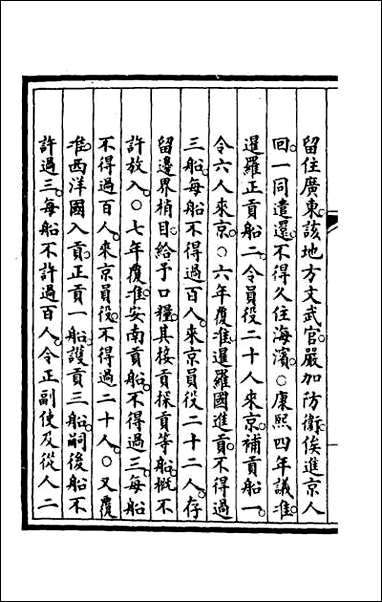 留住廣東該地方文武官嚴加防衛俟進京人
回一同遣還不得久住海濱○康熙四年議准
暹羅正貢船二令員役二十人來京補貢船一
令六人來京○六年覆准暹羅國進貢不得過
三船每船不得過百人來京員役二十二人存
留邊界楨目給予口糧其接貢探貢等船概不
許放入○七年覆准安南貢船不得過三每船
不得過百人來京員役不得過二十人○又覆
准西洋國入貢正貢一船護貢三船嗣後船不
許過三每船不許過百人令正副使及從人二